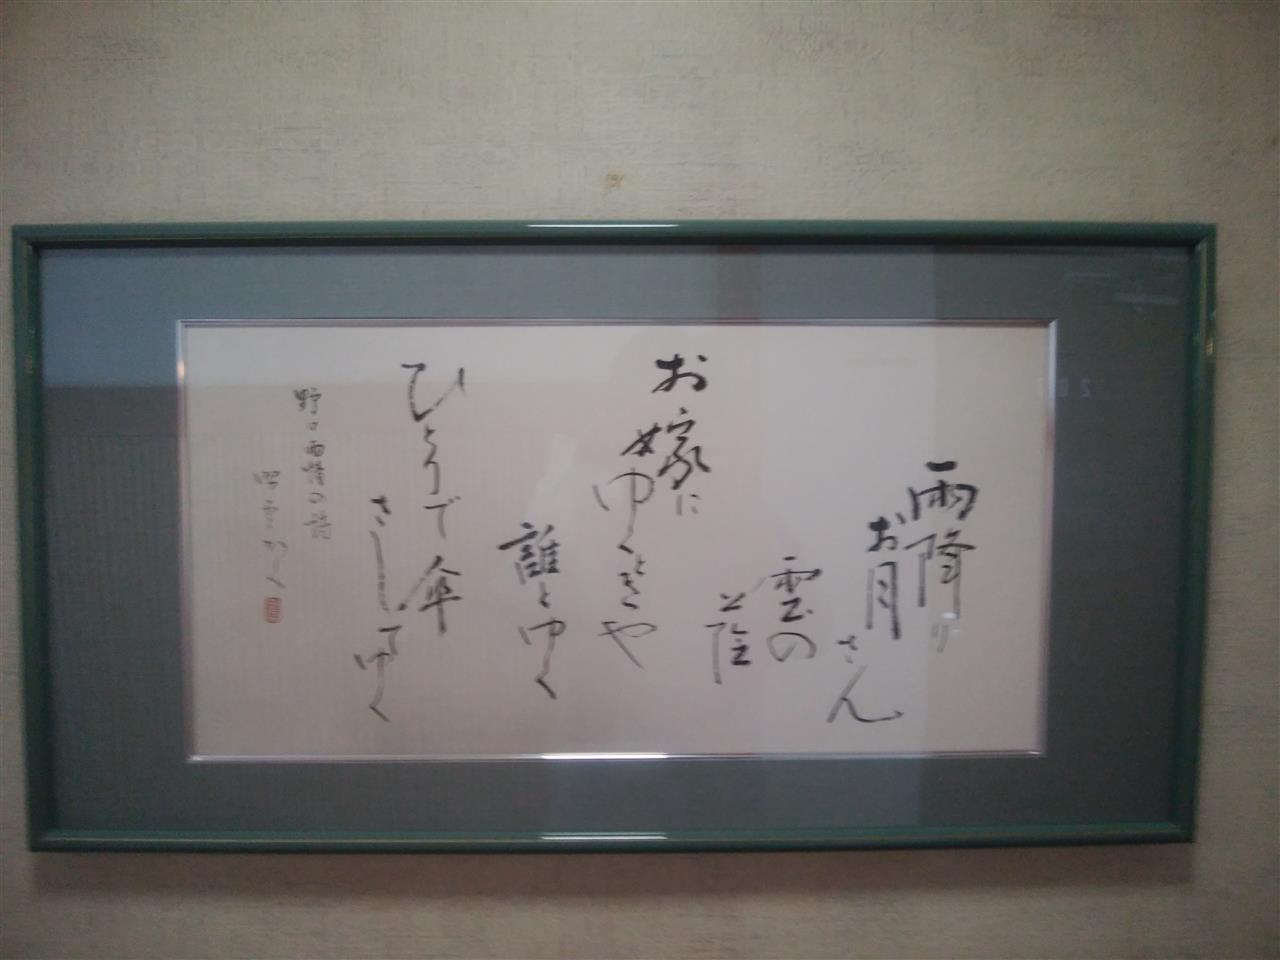 雨降り
お月
さん
雲の
蔭
お嫁に
ゆくときや
誰とゆく
ひとりで傘
さしてゆく
野口雨情の詩